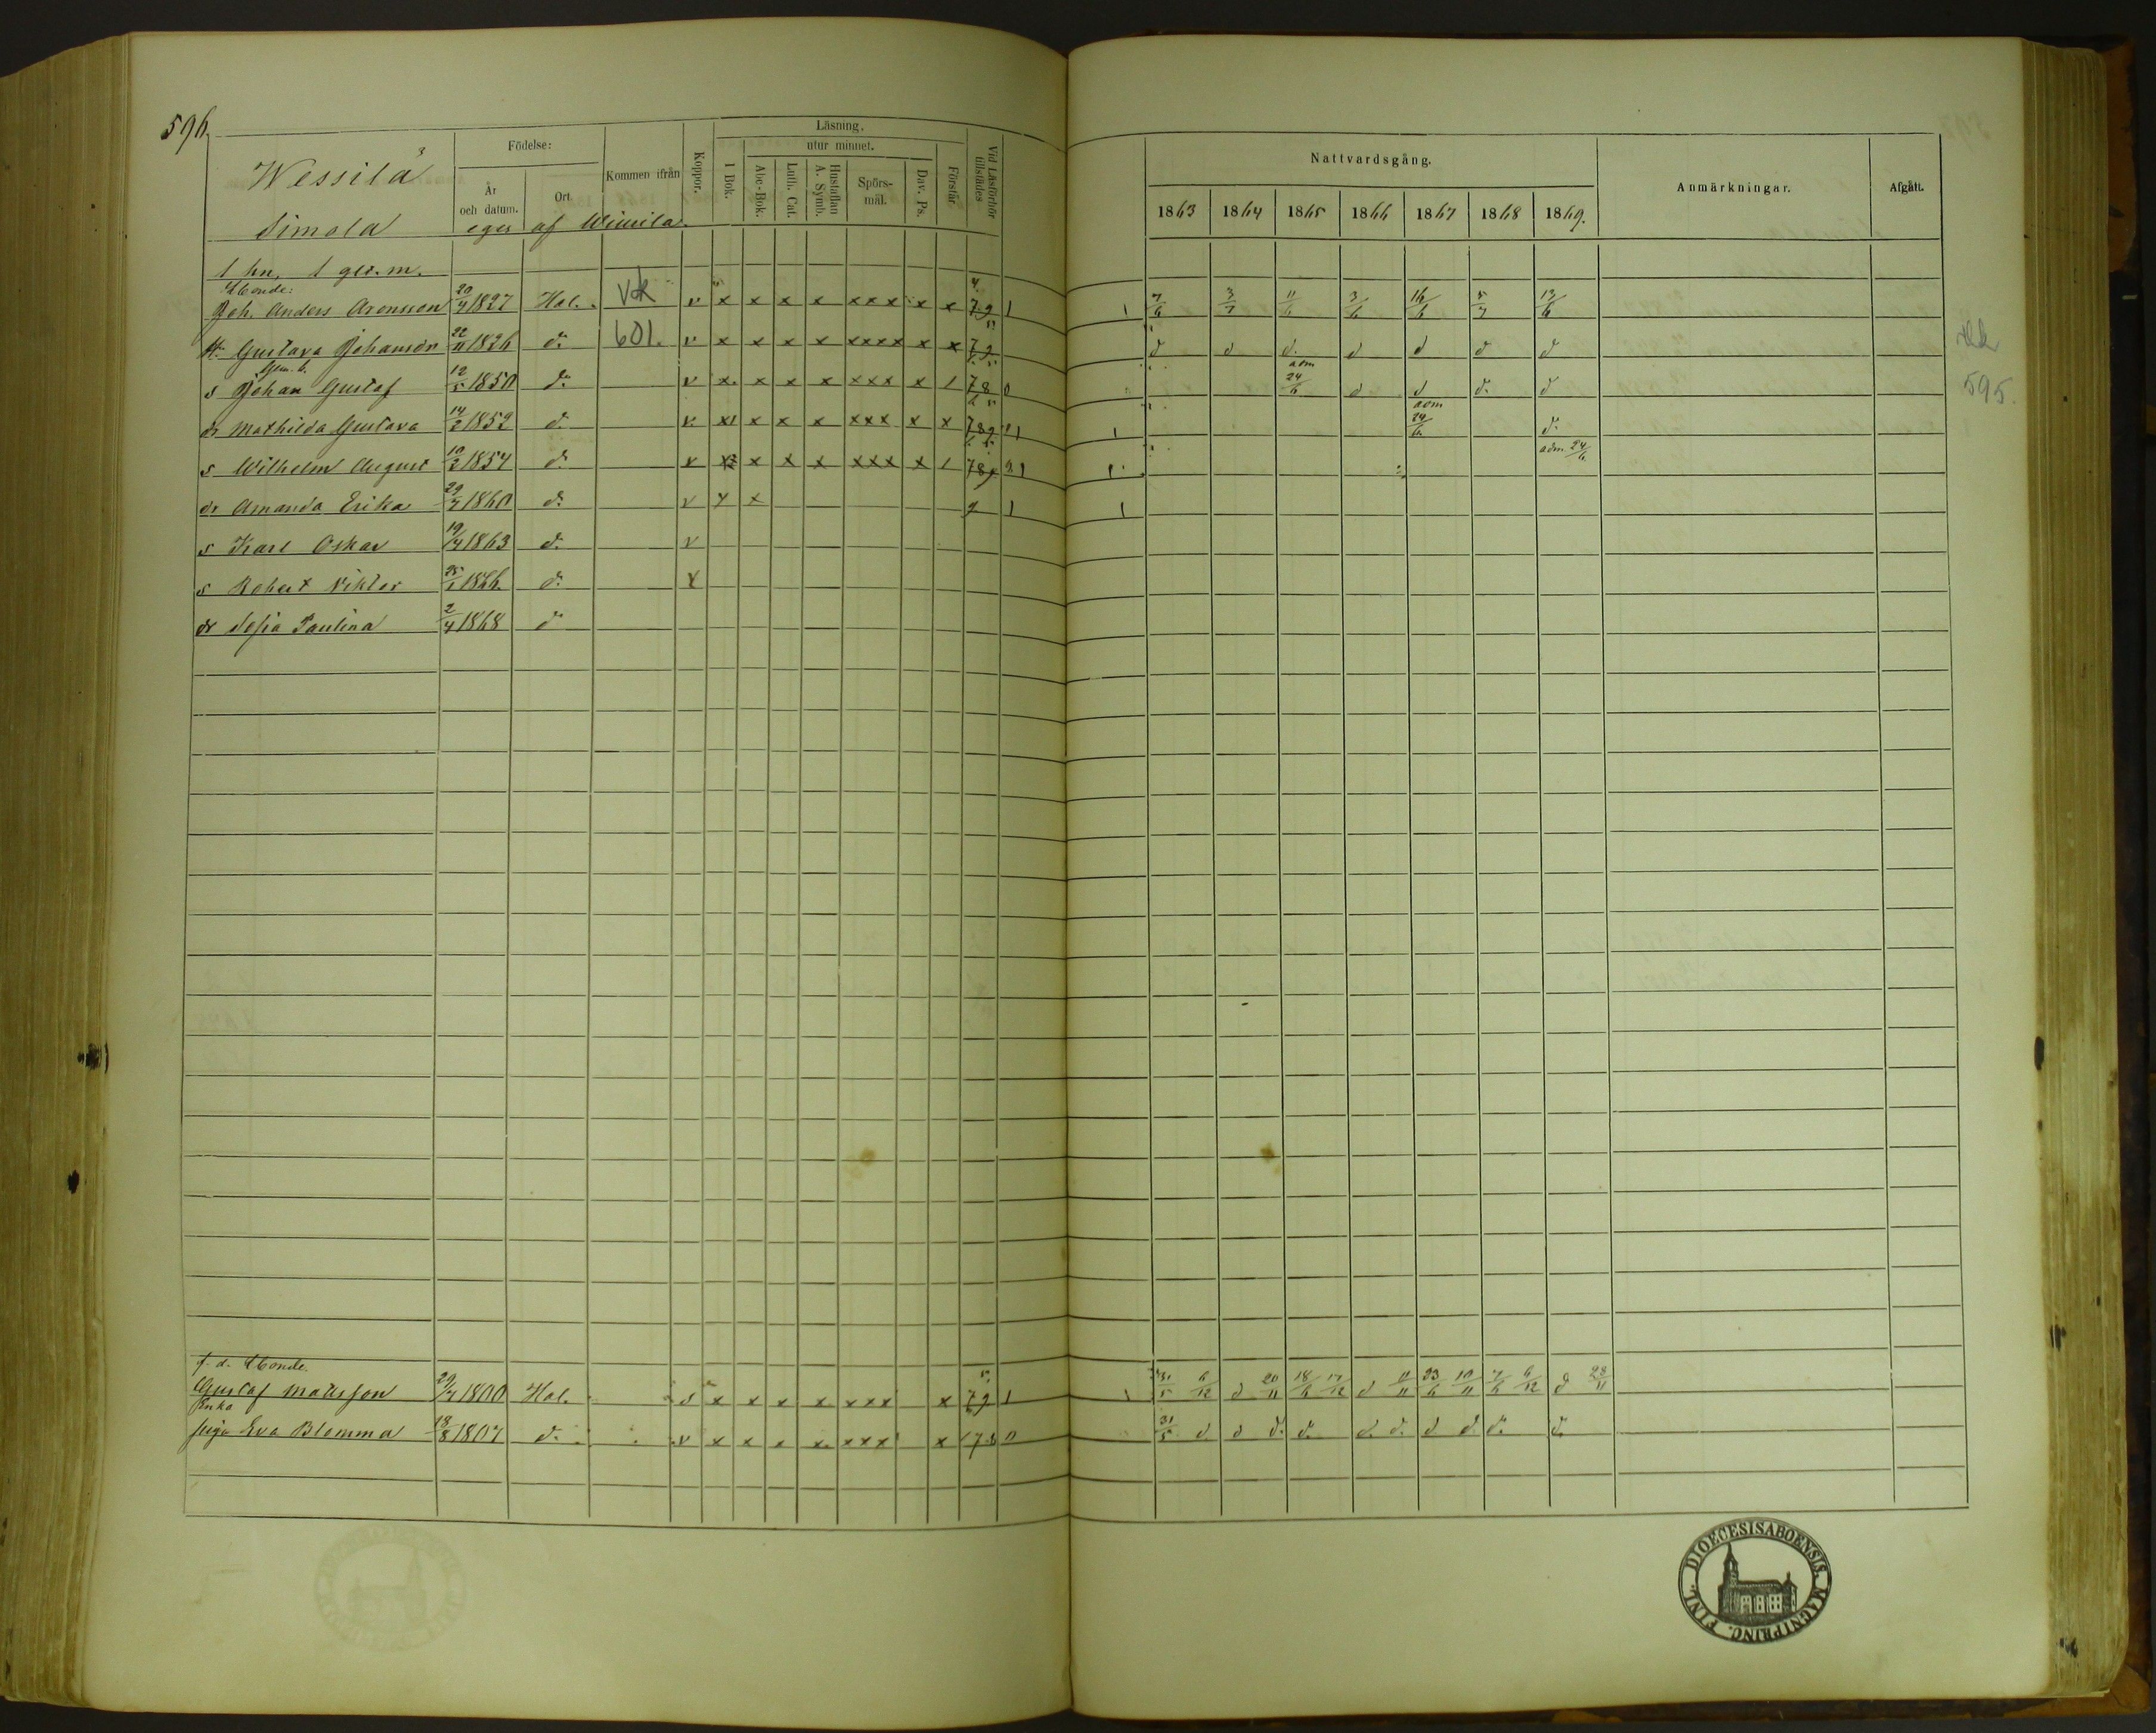 596.
Wessilä 3
Födelse:
Kommen ifrån
Koppor.
Läsning.
utur minnet.
I Bok.
Abc-Bok.
Luth. Cat.
Hustaflan A. Symb.
Spörsmål.
Dav. Ps.
Förstår
Vid Läsförhör tillstädes
År och datum.
Ort.
Nattvardsgång.
Anmärkningar.
Afgått.
1863 1864 1865 1866 1867 1868 1869.
Simola eges af Wiuvila.
1 hn, 1 ger. m.
Åbonde:
Joh. Anders Aronsson 20/4 1827 Hal. v x x x x xxx x x 79 1 1 7/6 3/7 11/6 3/6 16/6 5/7 13/6
H. Gustava Johansdr 22/11 1826 d:o 601. v x x x x xxxx x x 79 d d d. d d d d
s Johan Gustaf 12/5 1850 d:o v x x x x xxx x 1 78 0 adm 24/6 d d d. d
dr Mathilda Gustava 14/2 1852 d:o v x x x x xxx x x 789 1 1 adm 24/6 d:
s Wilhelm August 10/2 1854 d:o v x x x xxx x 1 789 1 adm. 24/6
dr Amanda Erika 29/4 1860 d:o v x x 9 1 1
s Karl Oskar 19/4 1863 d:o v
s Robert Viktor 25/1 1866 d:o v
dr Sofia Paulina 2/4 1868 d:o
595.
f. d. Åbonde.
Gustaf Matsson 29/4 1800 Hal. v x x x x xxx x 79 1 1 31/5 6/12 d 20/11 18/6 17/12 d 11/11 23/6 10/11 7/6 6/12 d 28/11
Enka
piga Eva Blomma 18/8 1807 d:o v x x x x xxx x 78 0 31/5 d. d d. d. d. d. d d. d. d.
FINL. DIOECESIS ABOENSIS. MAGNI PRINC.